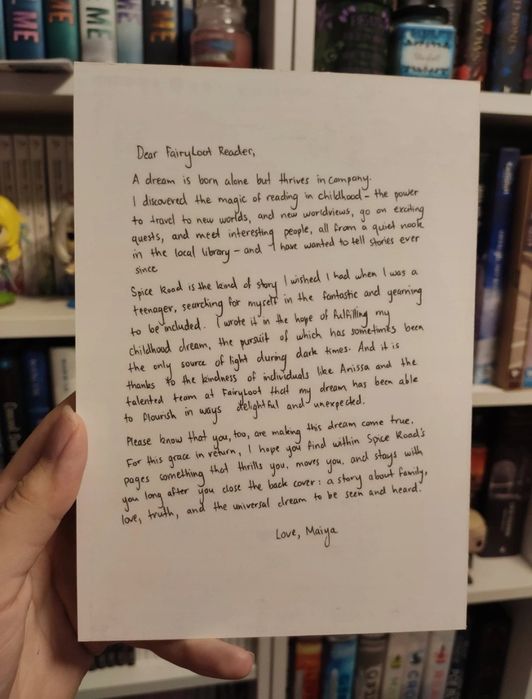 Dear FairyLoot Reader,
A dream is born alone but thrives in company.
I discovered the magic of reading in childhood – the power
to travel to new worlds, and new worldviews, go on exciting
quests, and meet interesting people, all from a quiet nook
in the local library – and I have wanted to tell stories ever
since.
Spice Road is the kind of story I wished I had when I was a
teenager, searching for myself in the fantastic and yearning
to be included. I wrote it in the hope of fulfilling my
childhood dream, the pursuit of which has sometimes been
the only source of light during dark times. And it is
thanks to the kindness of individuals like Anissa and the
talented team at FairyLoot that my dream has been able
to flourish in ways delightful and unexpected.
Please know that you, too, are making this dream come true.
For this grace in return, I hope you find within Spice Road's
pages something that thrills you, moves you, and stays with
you long after you close the back cover: a story about family,
love, truth, and the universal dream to be seen and heard.
Love, Maiya
ME
ME
ME